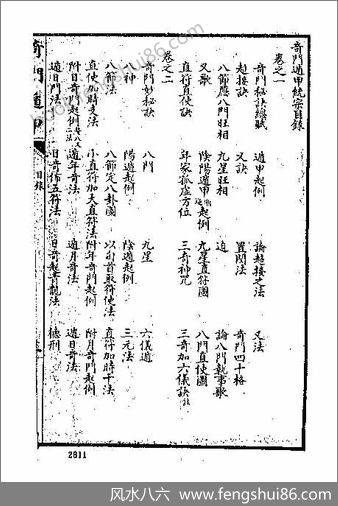 奇門遁甲統宗目錄
卷之一
奇門秘訣總賦 遁甲起例 論超接之法 又法
超接訣 又訣 置閏法 奇門四十格
八節應八門旺相 九星旺相 遁 論八門執事歌
又歌 陰陽遁甲起例 九星直符圖 八門直使圖
直符直使訣 年家孤虛方位 三奇神咒 三奇加六儀訣
卷之二
奇門妙秘訣 八門 九星 六儀遁
八神 陽遁起例 陰遁起例 三元法
八節法 八節定八卦圖 以旬首取符使法 直符加時干法
直使加時支法 小直符加大直符法 附年奇門起例 附月奇門起例
附日奇門起例 遁年奇法 遁月奇法 遁日奇法
奇門遁甲
目錄
2811
风水八六 www.fengshui86.com